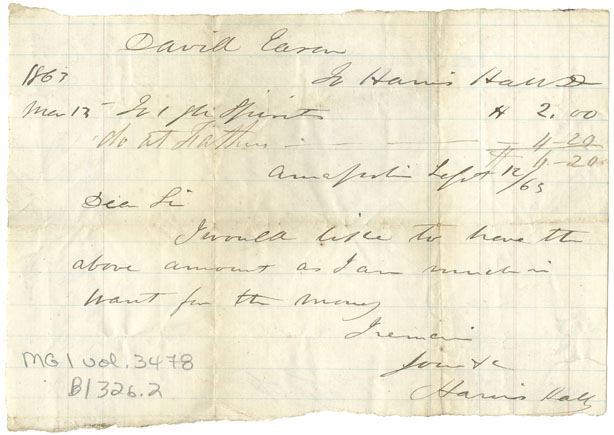 David Eason
1863 To Harris Hall Dr
Mar 13 To 1 gln Spirits $ 2.00
do at Fathers 4.20
$ 6.20
Annapolis Sept 12/63
Dear Sir
I would like to have the
above amount as I am much in
want for the money
I remain
Yours &c
Harris Hall
MG1 vol. 3478
B1326.2